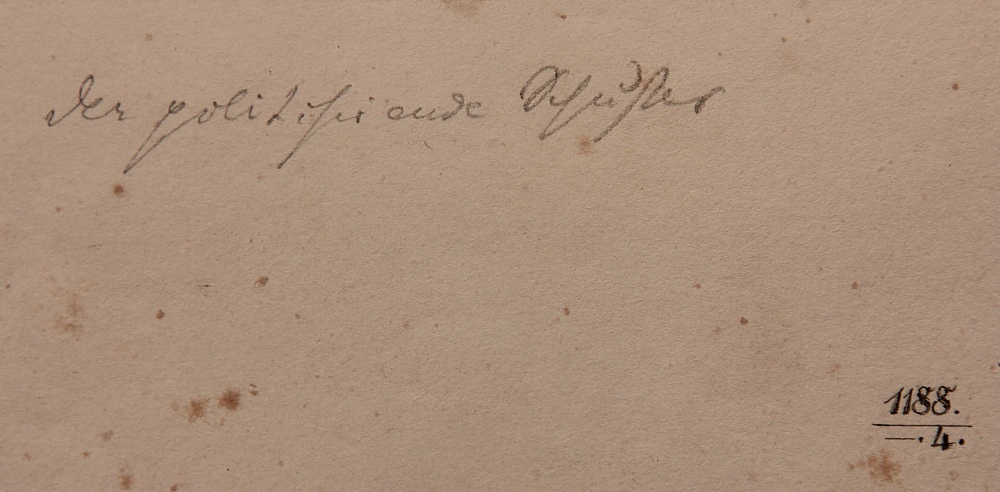 Der politisirende Schuster
1188.
—. 4.